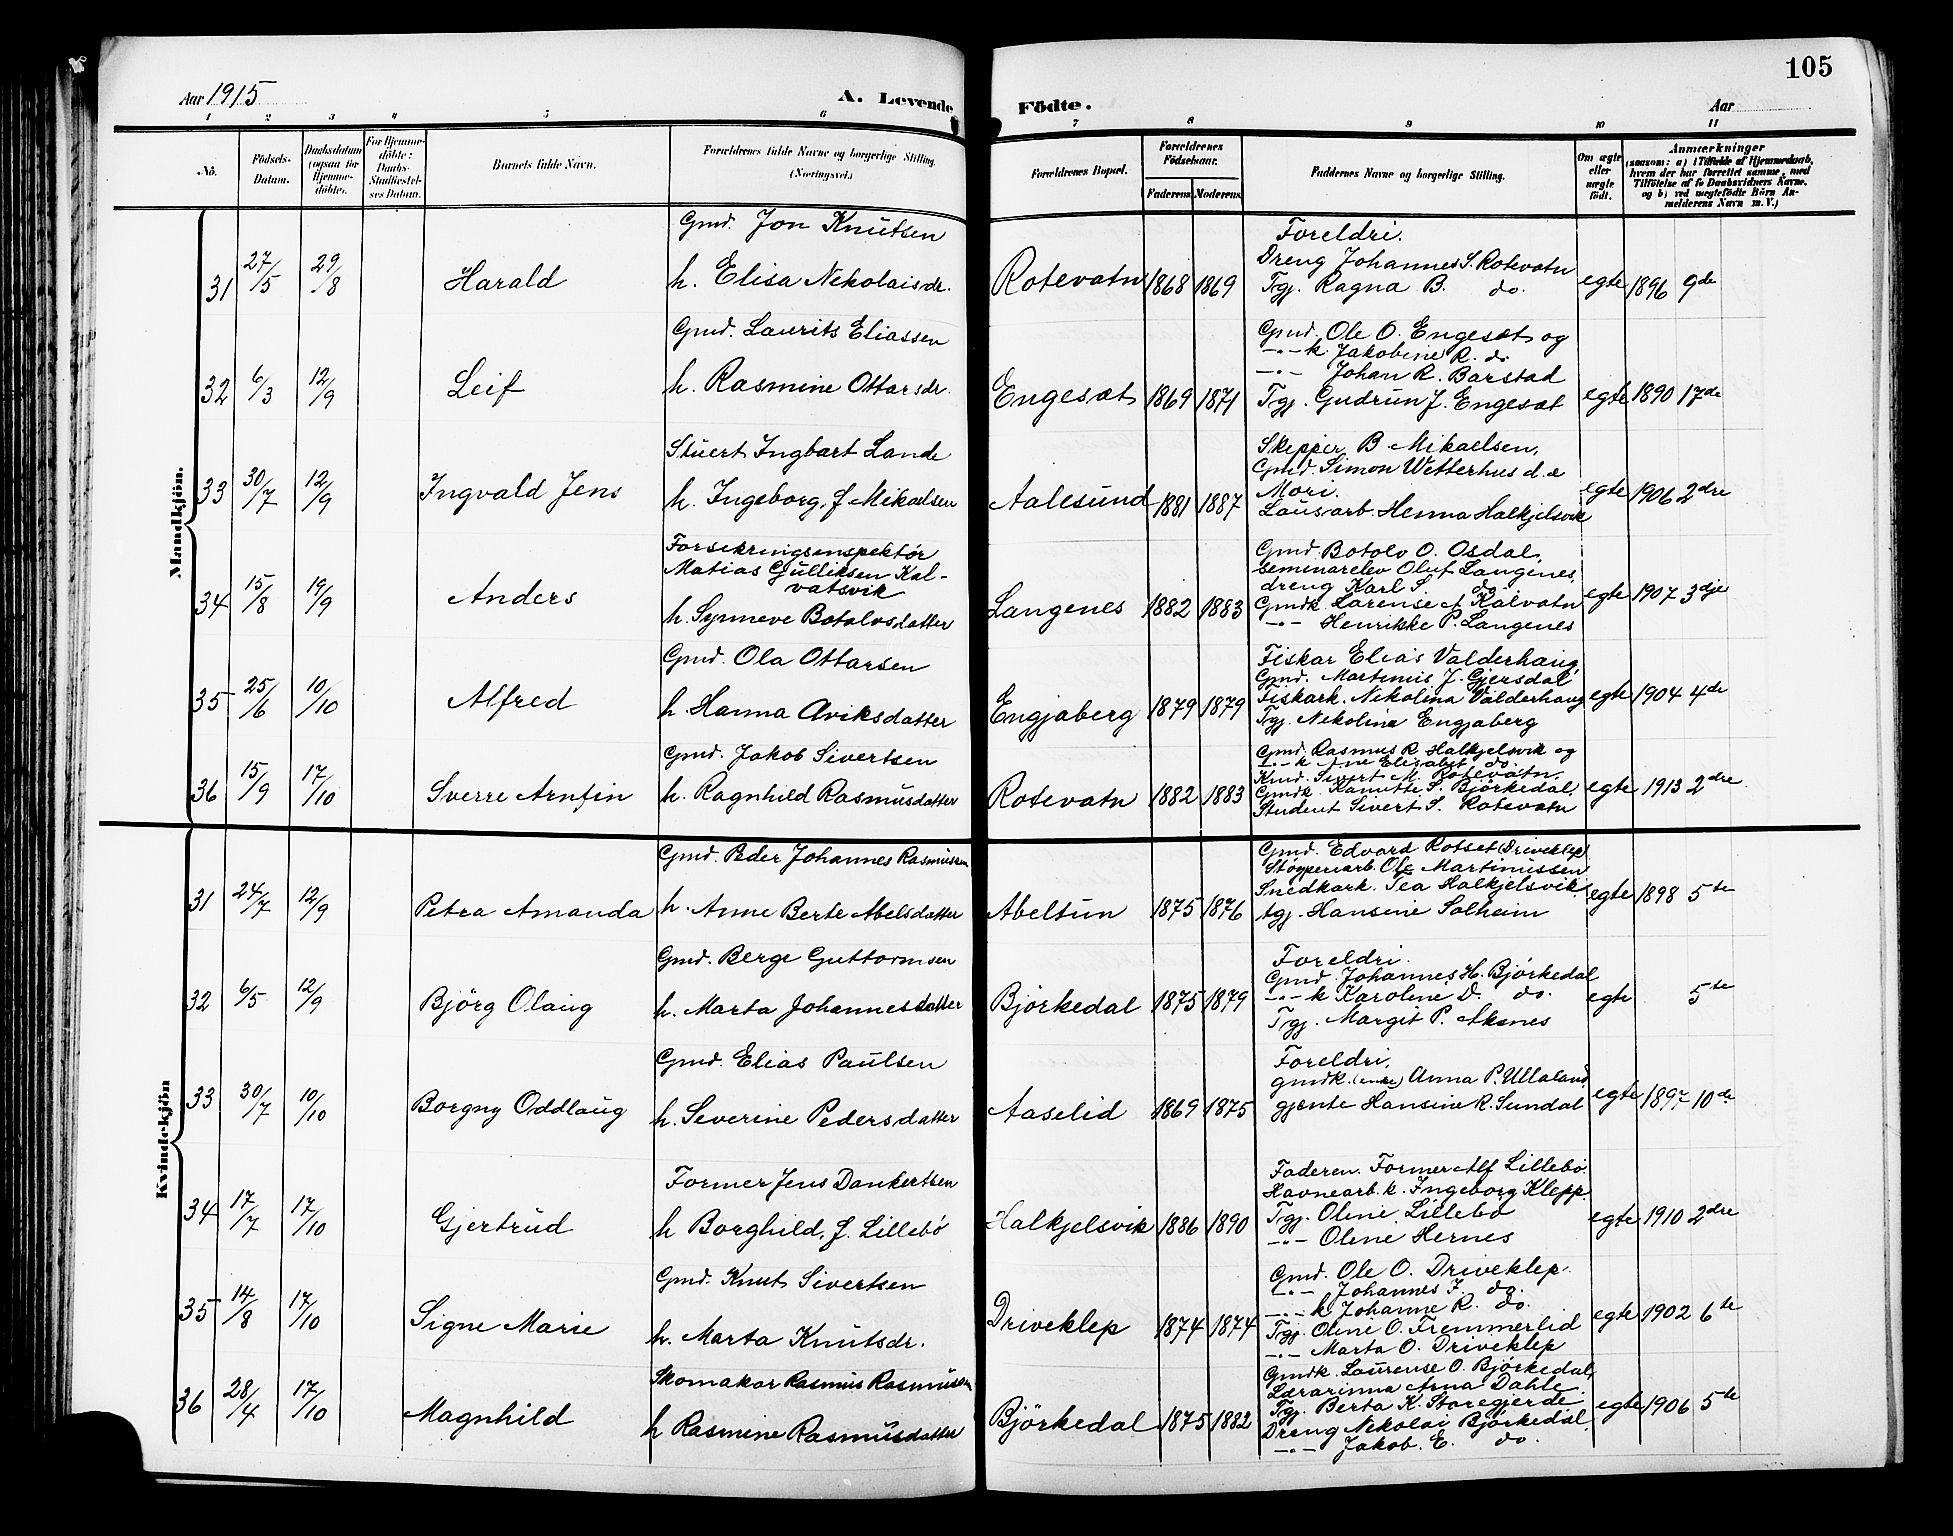 105
Aar 1915
A. Levende Födte.
Aar
1 2 3 4 5 6 7 8 9 10 11
No.
Födsels-Datum.
Daabsdatum (ogsaa for Hjemme-döbte).
For Hjemme-döbte: Daabs-Stadfæstel-ses Datum.
Barnets fulde Navn.
Forældrenes fulde Navne og borgerlige Stilling. (Næringsvei.)
Forældrenes Bopæl.
Forældrenes Födselsaar.
Faderens Moderens
Faddernes Navne og borgerlige Stilling.
Om ægte eller uægte födt.
Anmærkninger
(saasom: a) i Tilfælde af Hjemmedaab,
hvem der har forrettet samme, med
Tilföielse af to Daabsvidners Navne,
og b) ved uægtefödte Börn An-
melderens Navn m. V.)
Mandkjön.
Gmd. Jon Knutsen
31 27/5 29/8 Harald h. Elisa Nekolaisdr. Rotevatn 1868 1869
Foreldri.
Dreng Johannes S. Rotevatn
Tgj. Ragna B. do.
egte 1896 9de
Gmd. Laurits Eliassen
32 6/3 12/9 Leif h. Rasmine Ottarsdr. Engesæt 1869 1871
Gmd. Ole O. Engesæt og
-"- k. Jakobine R. do
-"- Johan R. Barstad
Tgj. Gudrun J. Engesæt
egte 1890 17de
Stuert Ingbart Lande
33 30/7 12/9 Ingvald Jens h. Ingeborg, f Mikaelsen Aalesund 1881 1887
Skepper B. Mikaelsen,
Gmd. Simon Wetterhus d.e
Mori.
Lausarb. Henna Halkjelsvik
egte 1906 2dre
Forsekringsinspektör
Matias Gulliksen Kal-
vatsvik
34 15/8 19/9 Anders h. Synneve Botolvsdatter Langenes 1882 1883
Gmd. Botolv O. Osdal,
Seminarelev Oluf Langenes,
dreng Karl S. do
Gmdk. Larense A Kalvatn
-"- Henrikke P. Langenes
egte 1907 3dje
Gmd. Ola Ottarsen
35 25/6 10/10 Alfred h. Hanna Aviksdatter Engjaberg 1879 1879
Fiskar Elias Valderhaug,
Gmd. Martinus J. Gjersdal
Fiskark. Nikolina Valderhaug
Tgj. Nekoline Engjaberg
egte 1904 4de
Gmd. Jakob Sivertsen
36 15/9 17/10 Sverre Arnfin h. Ragnhild Rasmusdatter Rotevatn 1882 1883
Gmd. Rasmus R. Halkjelsvik og
-"- k Ane Elisabet do.
Kmd. Sivert M. Rotevatn.
Gmdk. Kanutte S. Björkedal,
Student Sivert S. Rotevatn
egte 1913 2dre
Kvindekjön
Gmd. Peder Johannes Rasmussen
31 24/7 12/9 Petra Amanda h. Anne Berte Abelsdatter Abeltun 1875 1876
Gmd. Edvard Rotset (Driveklep)
Støyperiarb. Ole Martinussen
Snedkark. Tea Halkjelsvik.
tgj. Hansine Solheim
egte 1898 5te
Gmd. Berge Guttormsen
32 6/5 12/9 Björg Olaug h. Marta Johannesdatter Björkedal 1875 1879
Foreldri.
Gmd. Johannes H. Björkedal
-"- k Karoline D. do.
Tgj. Margit P. Aksnes
egte 5te
Gmd. Elias Paulsen
33 30/7 10/10 Borgny Oddlaug h. Severine Pedersdatter Aaselid 1869 1875
Foreldri,
gmdk. Anna P. Ullaland
gjente Hansine R. Sundal
egte 1897 10de
Former Jens Dankertsen
34 17/7 17/10 Gjertrud h Borghild, f. Lillebö Halkjelsvik 1886 1890
Faderen. Former Alf Lillebö.
Havnearb. k. Ingeborg Klepp.
Tgj. Oline Lillebö
-"- Oline Hernes
egte 1910 2dre
Gmd. Knut Sivertsen
35 14/8 17/10 Signe Marie h. Marta Knutsdr. Driveklep 1874 1874
Gmd. Ole O. Driveklep.
-"- Johannes J. do.
-"- k Johanne R. do.
Tgj. Oline O. Fremmerlid
-"- Marta O. Driveklep
egte 1902 6te
Skomakar Rasmus Rasmussen
36 28/4 17/10 Magnhild h Rasmine Rasmusdatter Björkedal 1875 1882
Gmdk. Laurense O. Björkedal,
Lærarinna Arna Dahle.
Tgj. Berta K. Storegjerde
Dreng Nekolai Björkedal.
-"- Jakob. E. do.
egte 1906 5te